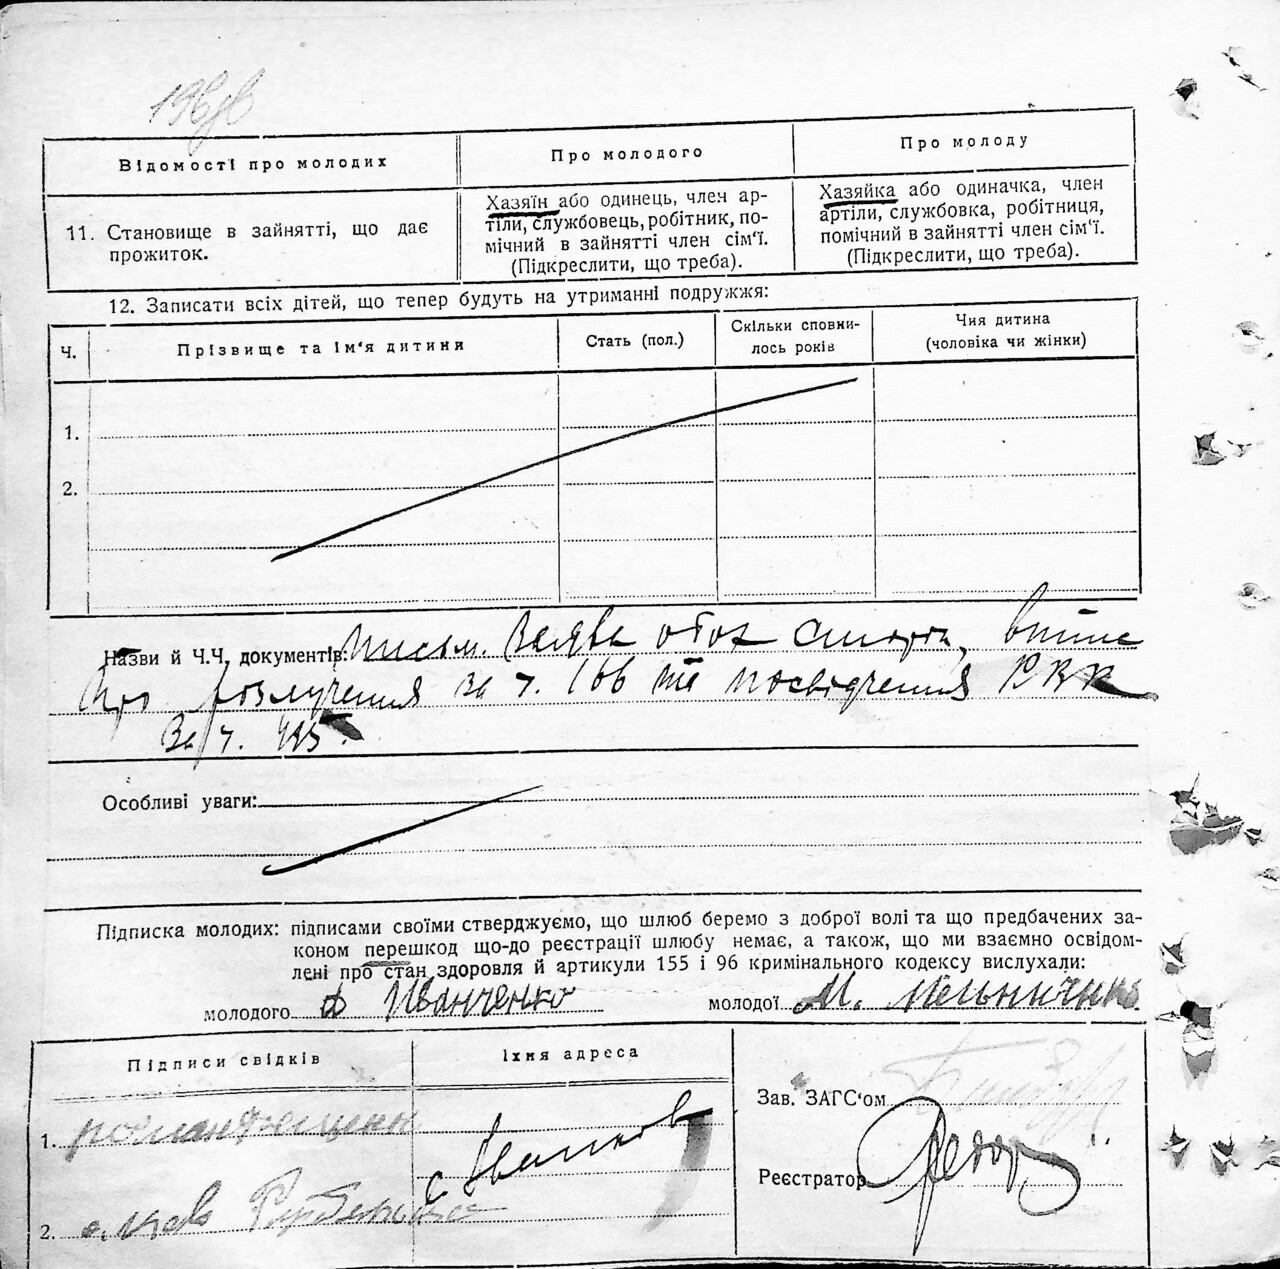 Відомості про молодих
Про молодого
Про молоду
11. Становище в зайнятті, що дає
прожиток.
Хазяїн або одинець, член ар-
тіли, службовець, робітник, по-
мічний в зайнятті член сім'ї.
(Підкреслити, що треба).
Хазяйка або одиначка, член
артіли, службовка, робітниця,
помічний в зайнятті член сім'ї.
(Підкреслити, що треба).
12. Записати всіх дітей, що тепер будуть на утриманні подружжя:
Ч.
Прізвище та ім'я дитини
Стать (пол.)
Скільки сповни-
лось років
Чия дитина
(чоловіка чи жінки)
1.
2.
Назви й Ч.Ч. документів: письм. Заява обох сторін,
про розлучення за ч. 166 та посвідчення РВК
За ч.
Особливі уваги:
Підписка молодих: підписами своїми стверджуємо, що шлюб беремо з доброї волі та що предбачених за-
коном перешкод що-до реєстрації шлюбу немає, а також, що ми взаємно освідом-
лені про стан здоровля й артикули 155 і 96 кримінального кодексу вислухали:
молодого Іванченко
молодої М. Мельниченко
Підписи свідків
Їхня адреса
1.
2.
Зав. ЗАГС'ом
Реєстратор